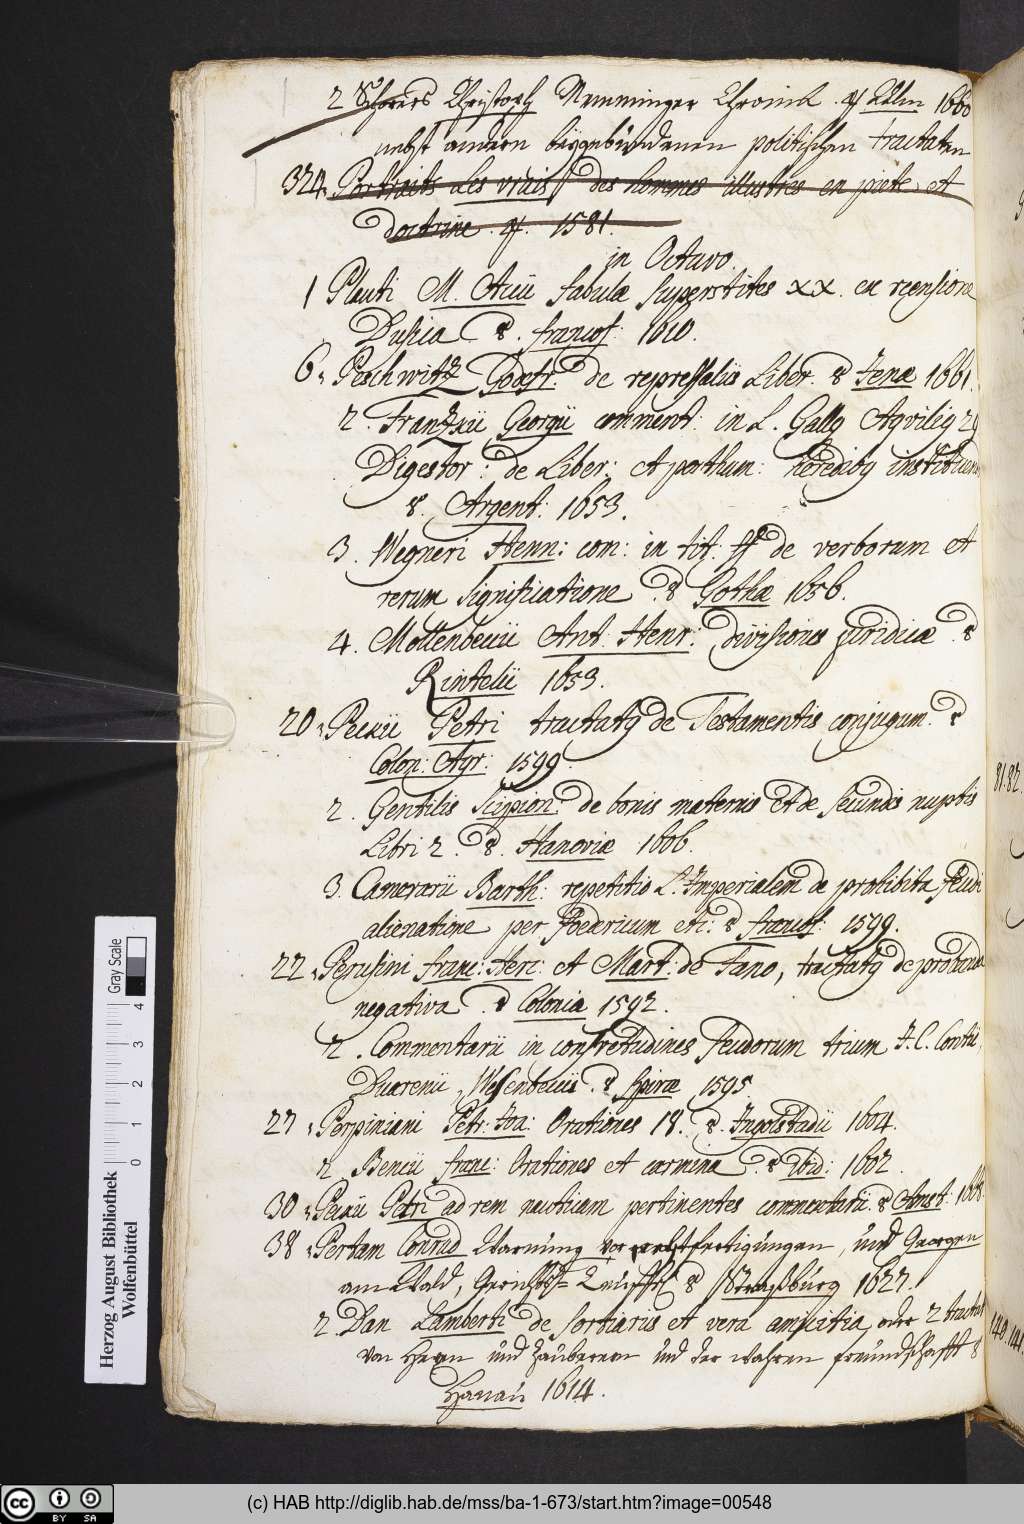 2 Schorers Christoph Memminger Chronick. 4. Ulm 1660
nebst andern beygebundenen politischen tractaten
324. Portraits Les vrais des hommes illustres en piete et
doctrine. 4. 1581.
in Octavo.
1 Plauti M. Accii fabulæ superstites XX. ex recensione
Dusica 8. francof: 1610.
6. Peschwitz Godofr. de represaliis Liber. 8 Jenæ 1661.
2. Frantzkii Georgii comment: in L. Gallg Aqvilig 29
Digestor: de Liber: et posthum: heredibg instituen
8. Argent: 1653.
3. Wegneri Henn: com: in tit: ff de verborum et
rerum significatione. 8 Gothæ 1656.
4. Mollenbeccii Ant: Henr: divisiones juridicæ. 8
Rintelii 1653.
20. Peckii Petri tractatg de Testamentis conjugum. 8
Colon: Agr: 1599.
2. Gentilis Scipion: de bonis maternis et de secundis nuptiis
Libri 2. 8. Hanoviæ 1606.
3. Camerarii Barth: repetitio L. Imperialem de prohibita feudi
alienatione per foedericum etc: 8 francof: 1599.
22. Perusini franc: Herc: et Mart: de Fano, tractatg de probanda
negativa. 8 Colonia 1592.
2. Commentarii in consvetudines feudorum trium J. C. Contii,
Duarenii, Wesenbeccii. 8 Spiræ 1595.
27. Perpiniani Petr: Joa: Orationes 18. 8. Ingolstadii 1604.
2 Bencii franc: Orationes et carmina. 8 Ibid: 1602.
30. Peckii Petri ad rem nauticam pertinentes commentarii. 8 Amst: 1668.
38. Pertam Conrad Warnung vor rechtfertigungen, und Georgen
am Wald, Gerichts= 8 Straßburg 1627.
2 Dan Lamberti de sortiariis et vera amicitia, oder 2 tractat
von Hexen und Zauberern und der wahren freundschafft 8
Hanau 1614.
81.82.
140.141.
Herzog August Bibliothek
Wolfenbüttel
0 1 2 3 4
Gray Scale
CC BY SA
(c) HAB http://diglib.hab.de/mss/ba-1-673/start.htm?image=00548